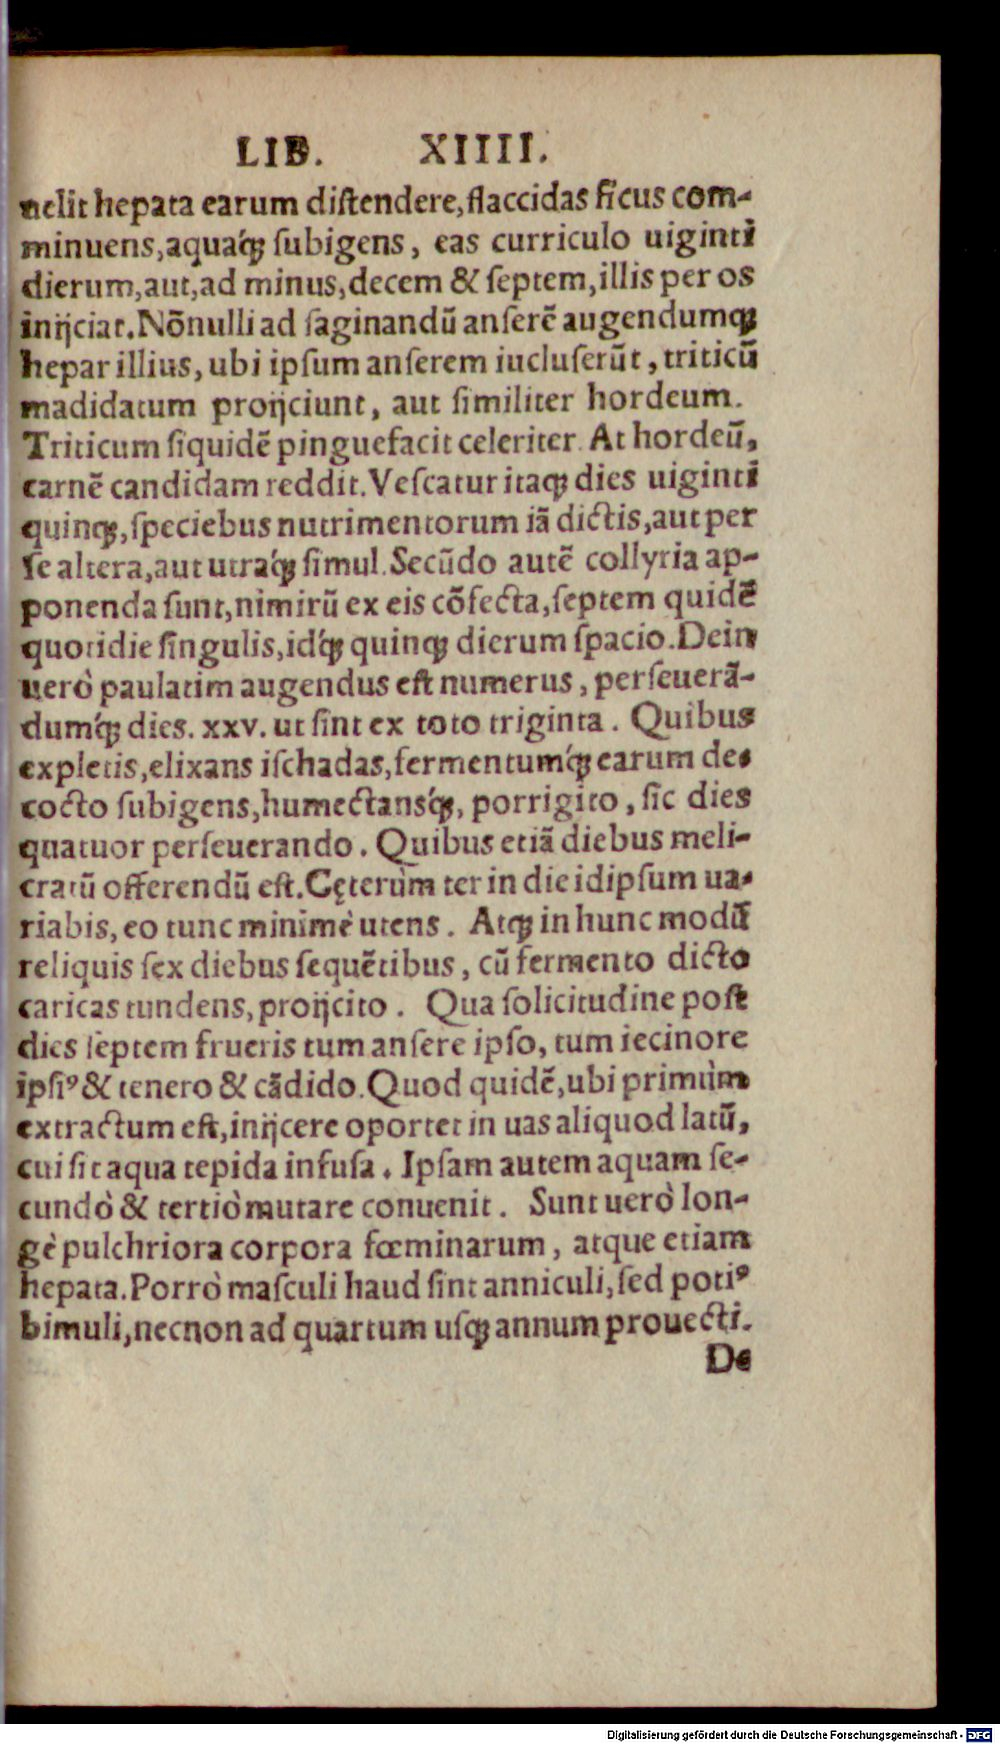 LIB. XIIII.
uelit hepata earum distendere, flaccidas ficus com-
minuens, aquaq́ꝫ subigens, eas curriculo uiginti
dierum, aut, ad minus, decem & septem, illis per os
inijciat. Nõnulli ad saginandũ anserẽ augendumqꝫ
hepar illius, ubi ipsum anserem iucluserũt, triticũ
madidatum proijciunt, aut similiter hordeum.
Triticum siquidẽ pinguefacit celeriter. At hordeũ,
carnẽ candidam reddit. Vescatur itaqꝫ dies uiginti
quinqꝫ, speciebus nutrimentorum iã dictis, aut per
se altera, aut utraq́ꝫ simul. Secũdo autẽ collyria ap-
ponenda sunt, nimirũ ex eis cõfecta, septem quidẽ
quotidie singulis, idq́ꝫ quinqꝫ dierum spacio. Dein
uerò paulatim augendus est numerus, perseuerã-
dumq́ꝫ dies. xxv. ut sint ex toto triginta. Quibus
expletis, elixans ischadas, fermentumq́ꝫ earum de-
cocto subigens, humectansq́ꝫ, porrigito, sic dies
quatuor perseuerando. Quibus etiã diebus meli-
cratũ offerendũ est. Cęterùm ter in die idipsum ua-
riabis, eo tunc minimè utens. Atqꝫ in hunc modũ
reliquis sex diebus sequẽtibus, cũ fermento dicto
caricas tundens, proijcito. Qua solicitudine post
dies septem frueris tum ansere ipso, tum iecinore
ipsiꝰ & tenero & cãdido. Quod quidẽ, ubi primùm
extractum est, inijcere oportet in uas aliquod latũ,
cui sit aqua tepida infusa. Ipsam autem aquam se-
cundò & tertiò mutare conuenit. Sunt uerò lon-
gè pulchriora corpora fœminarum, atque etiam
hepata. Porrò masculi haud sint anniculi, sed potiꝰ
bimuli, necnon ad quartum usqꝫ annum prouecti.
De
Digitalisierung gefördert durch die Deutsche Forschungsgemeinschaft - DFG